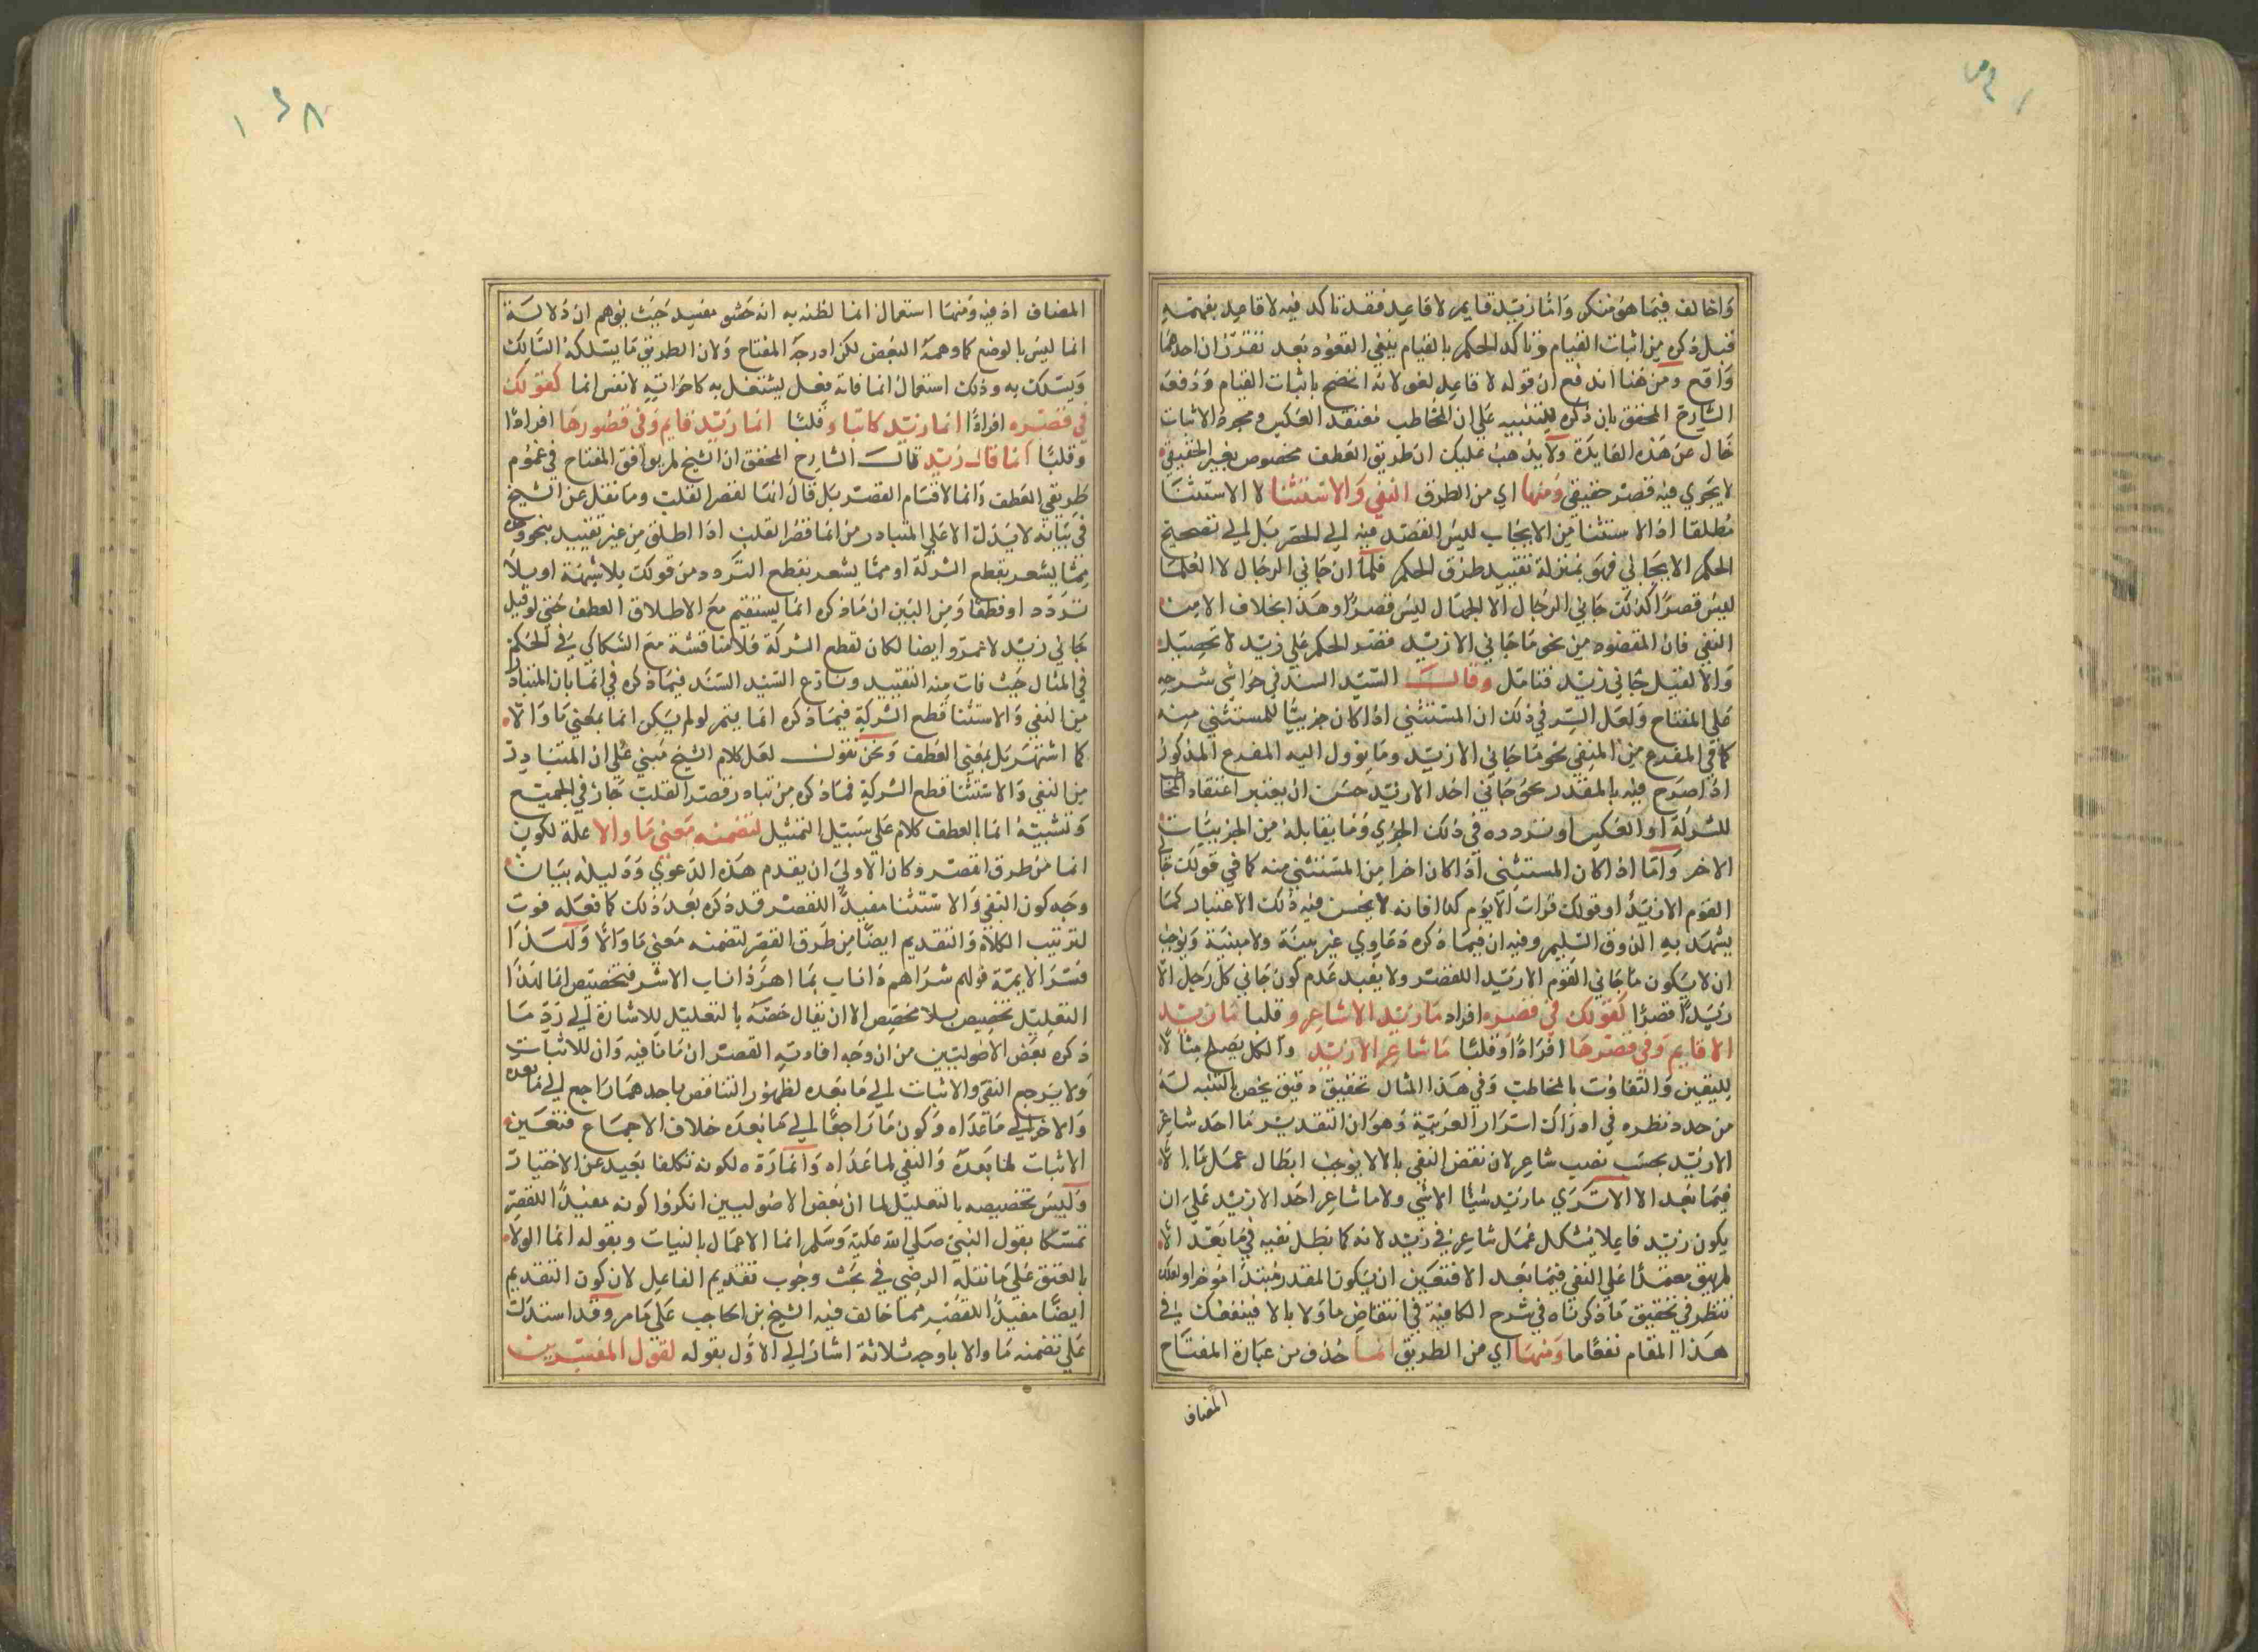 واخالف فيما هو منكر واما زيد قايم لا قاعد فقد تاكد فيه لا قاعد بفهمه
قبل ذكره من اثبات القيام وتاكد الحكم بالقيام بنفي القعود بعد تقرر ان احدهما
واقع ومن هنا اندفع ان قوله لا قاعد لغو لانه اتضح باثبات القيام ودفعه
الشارح المحقق بان ذكره للتنبيه على ان المخاطب معتقد العكس ومجرد الاثبات
خال عن هذه الفايدة ولا يذهب عليك ان طريق العطف مخصوص بغير الحقيقي
لا يجري فيه قصر حقيقي ومنها اي من الطرق النفي والاستثنا لا الاستثنا
مطلقا اذ الاستثنا من الايجاب ليس القصد فيه الى الحصر بل الى تصحيح
الحكم الايجابي فهو بمنزلة تقييد طرف الحكم فكما ان جاني الرجال لا العلما
ليس قصرا كذلك جاني الرجال الا الجهال ليس قصرا وهذا بخلاف الا من
النفي فان المقصود من نحو ما جاني الا زيد قصر الحكم على زيد لا تحصيل
والا لقيل جاني زيد فتامل وقال السيد السند في حواشي شرحه
على المفتاح ولعل السر في ذلك ان المستثنى اذا كان جزييا للمستثنى منه
كما في المفرغ من المنفي نحو ما جاني الا زيد وما يوول اليه المفرغ المذكور
اذا صرح فيه بالمقدر نحو جاني احد الا زيد حسن ان يعتبر اعتقاد المخا
للشركة او العكس او تردده في ذلك الجزي وما يقابله من الجزييات
الاخر واما اذا كان المستثنى اذا كان اخرا من المستثنى منه كما في قولك جاني
القوم الا زيدا وقولك قرات الا يوم كذا فانه لا يحسن فيه ذلك الاعتبار كما
يشهد به الذوق السليم وفيه ان فيما ذكره دعاوي غير بينة ولا مبنية ويوجب
ان لا يكون ما جاني القوم الا زيد اللقصر ولا يفيد عدم كون جاني كل رجل الا
زيدا قصرا كقولك في قصره افراد ما زيد الا شاعر وقلبا ما زيد
الا قايم وفي قصرها افرادا وقلبا ما شاعر الا زيد والكل يصلح مثالا
لليقين والتفاوت بالمخاطب وفي هذا المثال تحقيق دقيق يخص بالتنبه له
من حدد نظره في ادراك اسرار العربية وهو ان التقدير ما احد شاعر
الا زيد بحسب نصب شاعر لان نقض النفي بالا لا يوجب ابطال عمل ما الا
فيما بعد الا الا ترى ما زيد شيئا الا شي ولا ما شاعر احد الا زيد على ان
يكون زيد فاعلا يشكل عمل شاعر في زيد لانه كما بطل نفيه في ما بعد الا
لم يبق معتمدا على النفي فيما بعد الا فتعين ان يكون المقدر مبتدا موخرا ولعلك
تنظر في تحقيق ما ذكرناه في شرح الكافية في انتقاض ما ولا بالا فينفعك في
هذا المقام نفعا ما ومنها اي من الطريق انما حذف من عبارة المفتاح
المضاف
المضاف اذ فيه ومنها استعمال انما لظنه به انه حشو مفسد حيث يوهم ان دلالة
انما ليس بالوضع كما وهمه البعض لكن ادرجه المفتاح ولان الطريق ما يسلكه السالك
ويسلك به وذلك استعمال انما فانه فعل يشتغل به كاخواتيه لا نفس انما كقولك
في قصره افرادا انما زيد كاتبا وقلبا انما زيد قايم وفي قصورها افرادا
وقلبا انما قال زيد قال الشارح المحقق ان الشيخ لم يوافق المفتاح في عموم
طريقي العطف وانما لاقسام القصر بل قال انها لقصر القلب وما نقل عن الشيخ
في بيانه لا يدل الا على المتبادر من انما قصر القلب اذا اطلق من غير تقييد بنحو وحده
مما يشعر بقطع الشركة او مما يشعر بقطع التردد من قولك بلا شبهة او بلا
تردد او قطعا ومن البين ان ما ذكره انما يستقيم مع الاطلاق العطف حتى لو قيل
جاني زيد لا عمرو ايضا لكان لقطع الشركة فلا مناقشة مع السكاكي في الحكم
في المثال حيث فات منه التقييد ونازع السيد السند فيما ذكره في انما بان المتبادر
من النفي والاستثنا قطع الشركة فيما ذكره انما يتم لو لم يكن انما بمعنى ما والا
كما اشتهر بل بمعنى العطف ونحن نقول لعل كلام الشيخ مبني على ان المتبادر
من النفي والاستثنا قطع الشركة فما ذكره من تبادر قصر القلب جاز في الجميع
وتشبيه انما بالعطف كلام على سبيل التمثيل لتضمنه معنى ما والا علة لكون
انما من طرق القصر وكان الاولى ان يقدم هذه الدعوى ودليله ببيان
وجه كون النفي والاستثنا مفيدا للقصر قد ذكره بعد ذلك كما نعله فوت
لترتيب الكلام والتقديم ايضا من طرق القصر لتضمنه معنى ما والا ولهذا
فسر الايمة قولهم شر اهر ذا ناب بما اهر ذا ناب الا شر فتخصيص انما لهذا
التعليل تخصيص بلا مخصص الا ان يقال خصه بالتعليل للاشارة الى رد ما
ذكره بعض الاصوليين من ان وجه افادته القصر ان ما نافيه وان للاثبات
ولا يرجع النفي والاثبات الى ما بعده لظهور التناقض باحدهما راجع الى ما بعده
والاخر الى ما عداه وكون ما راجعا الى ما بعده خلاف الاجماع فتعين
الاثبات لما بعده والنفي لما عداه وانما رده لكونه تكلفا بعيد عن الاختيار
وليس تخصيصه بالتعليل لما ان بعض الاصوليين انكروا كونه مفيدا للقصر
تمسكا بقول النبي صلى الله عليه وسلم انما الاعمال بالنيات وبقوله انما الولا
بالعتق على ما نقله الرضي في بحث وجوب تقديم الفاعل لان كون التقديم
ايضا مفيدا للقصر مما خالف فيه الشيخ بن الحاجب على ما مر وقد استدل
على تضمنه ما والا باوجه ثلاثة اشار الى الاول بقوله لقول المفسرين